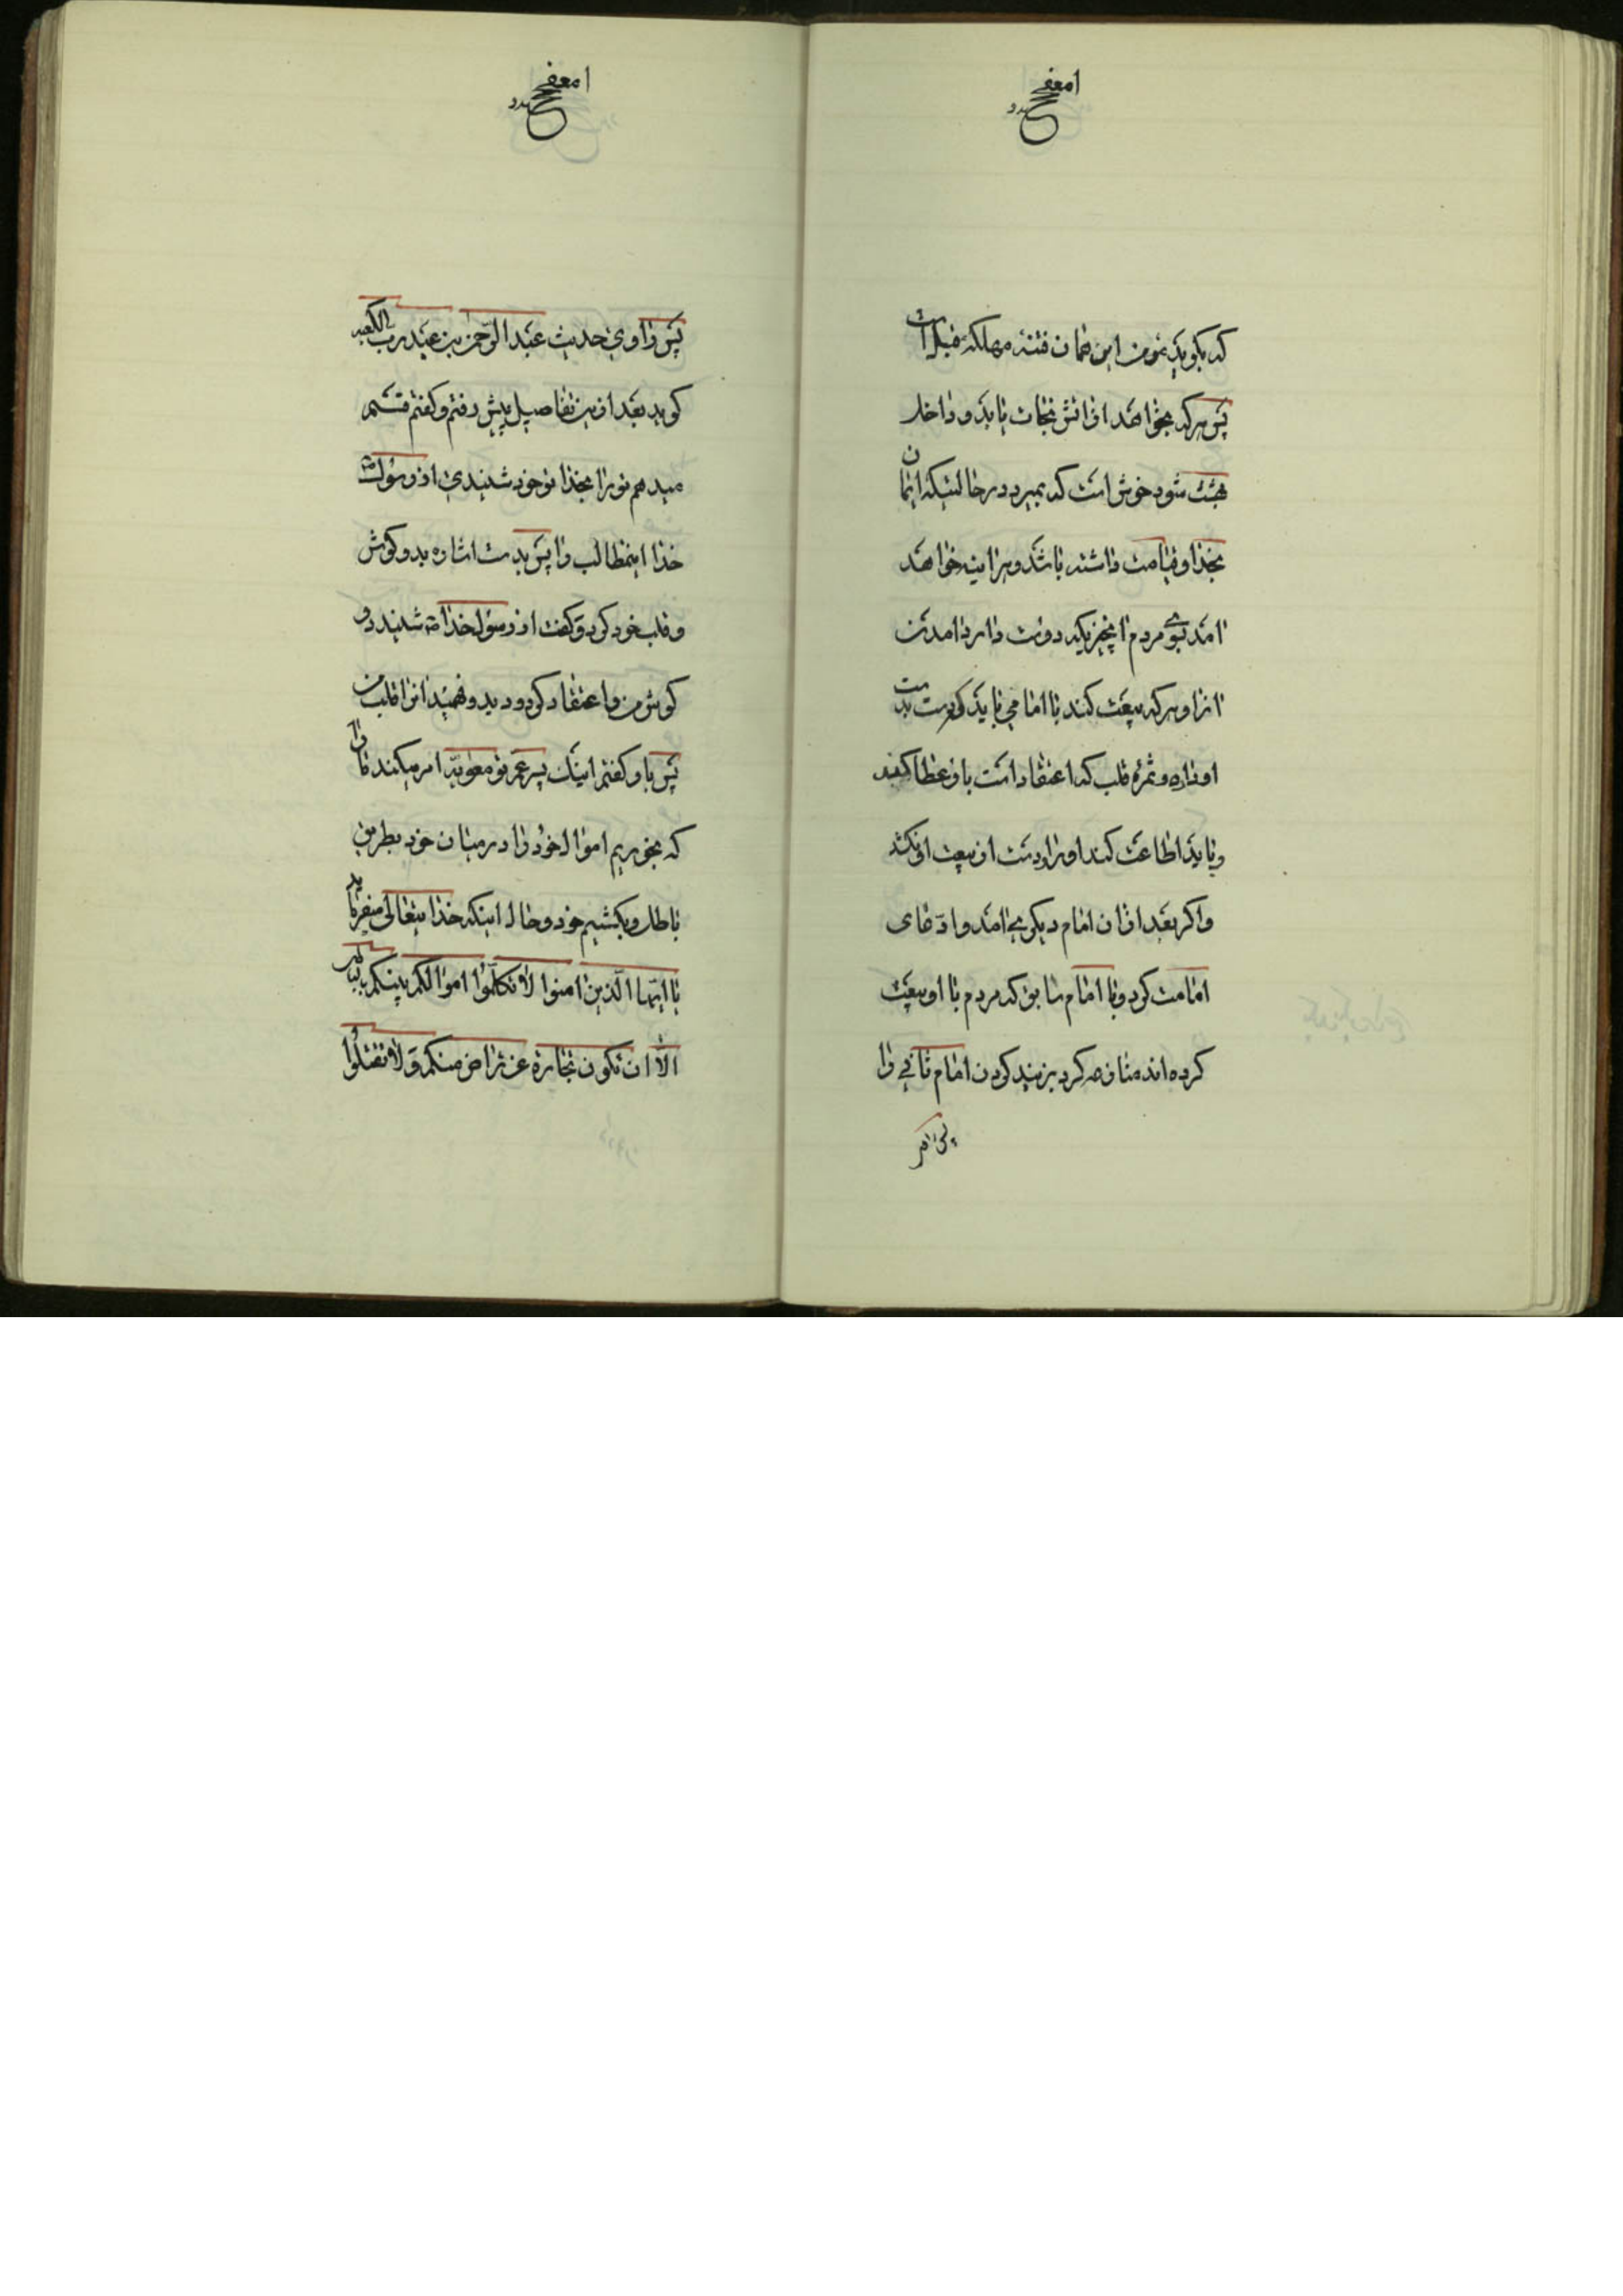 که بگوید مؤمن این همان فتنهٔ مهلکهٔ است
پس هرکه بخواهد از آتش نجات یابد و داخل
بهشت شود خوش است که بمیرد در حالتیکه ایمان
بخدا و قیامت داشته باشد و هراینه خواهد
آمد بسوی مردم آنچیزیکه دوست دارد آمدن
آنرا و هرکه بیعت کند با امامی باید که دست بدست
او داده و ثمرهٔ قلب که اعتقاد است باو عطا کند
و باید اطاعت کند او را و دست از بیعت او نکشد
و اگر بعد از آن امام دیگری آمد و ادّعای
امامت کرد و با امام سابق که مردم با او بیعت
کرده‌اند منازعه کرد بزنید گردن امام ثانی را
پس راوی حدیث عبد الرّحمن بن عبد ربّ الکعبه
گوید بعد ازین تفاصیل پیش رفتم و گفتم قسم
میدهم تو را بخدا تو خود شنیدی از رسول
خدا اینمطالب را پس بدست اشاره بدو گوش
و قلب خود کرد و گفت از رسول خدا شنید دو
گوش من و اعتقاد کرد و دید و فهمید آنرا قلب من
پس باو گفتم اینک پسر عم تو معویه امر میکند مارا
که بخوریم اموال خود را در میان خود بطریق
باطل و بکشیم خود و حال اینکه خدا یتعالی میفرماید
یا ایّها الّذین امنوا لا تاکلوا اموالکم بینکم بالباطل
الّا ان تکون تجارة عن تراض منکم و لا تقتلوا